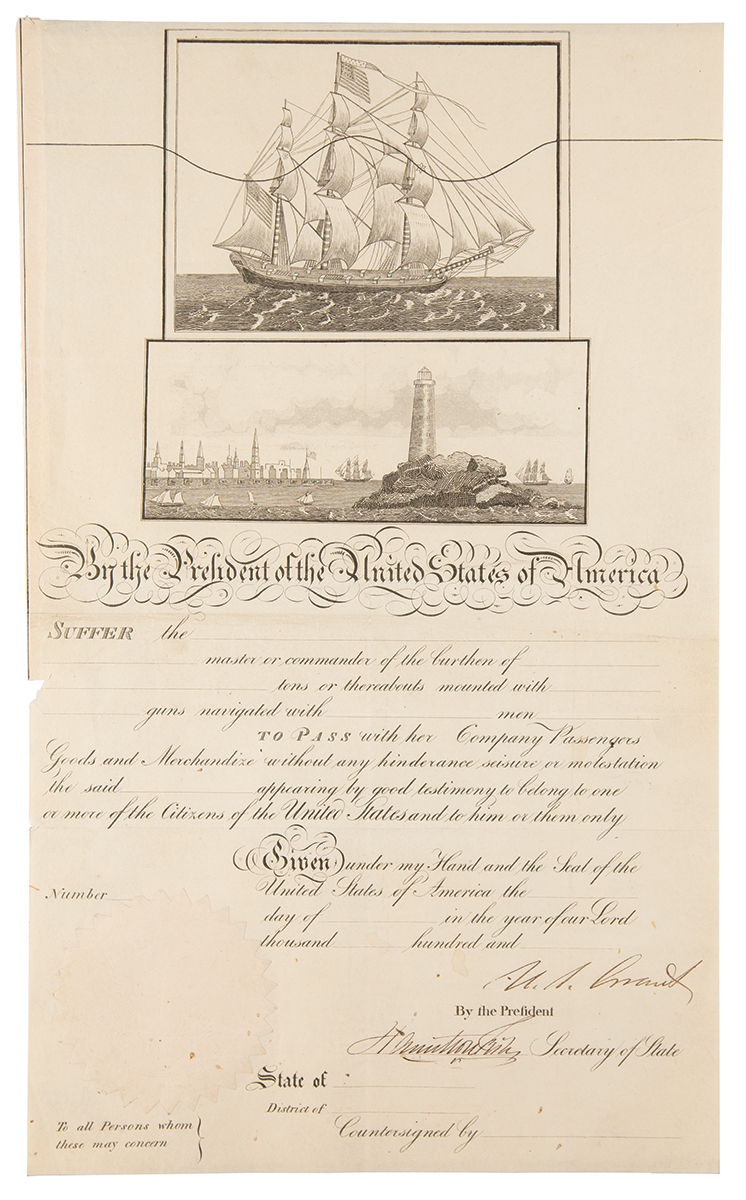 By the President of the United States of America
SUFFER the
master or commander of the burthen of
tons or thereabouts mounted with
guns navigated with men
TO PASS with her Company Passengers
Goods and Merchandize without any hinderance seisure or molestation
the said appearing by good testimony to belong to one
or more of the Citizens of the United States and to him or them only
Given under my Hand and the Seal of the
United States of America the
Number
day of in the year of our Lord
thousand hundred and
U. S. Grant
By the President
Hamilton Fish Secretary of State
State of
District of
Countersigned by
To all Persons whom
these may concern